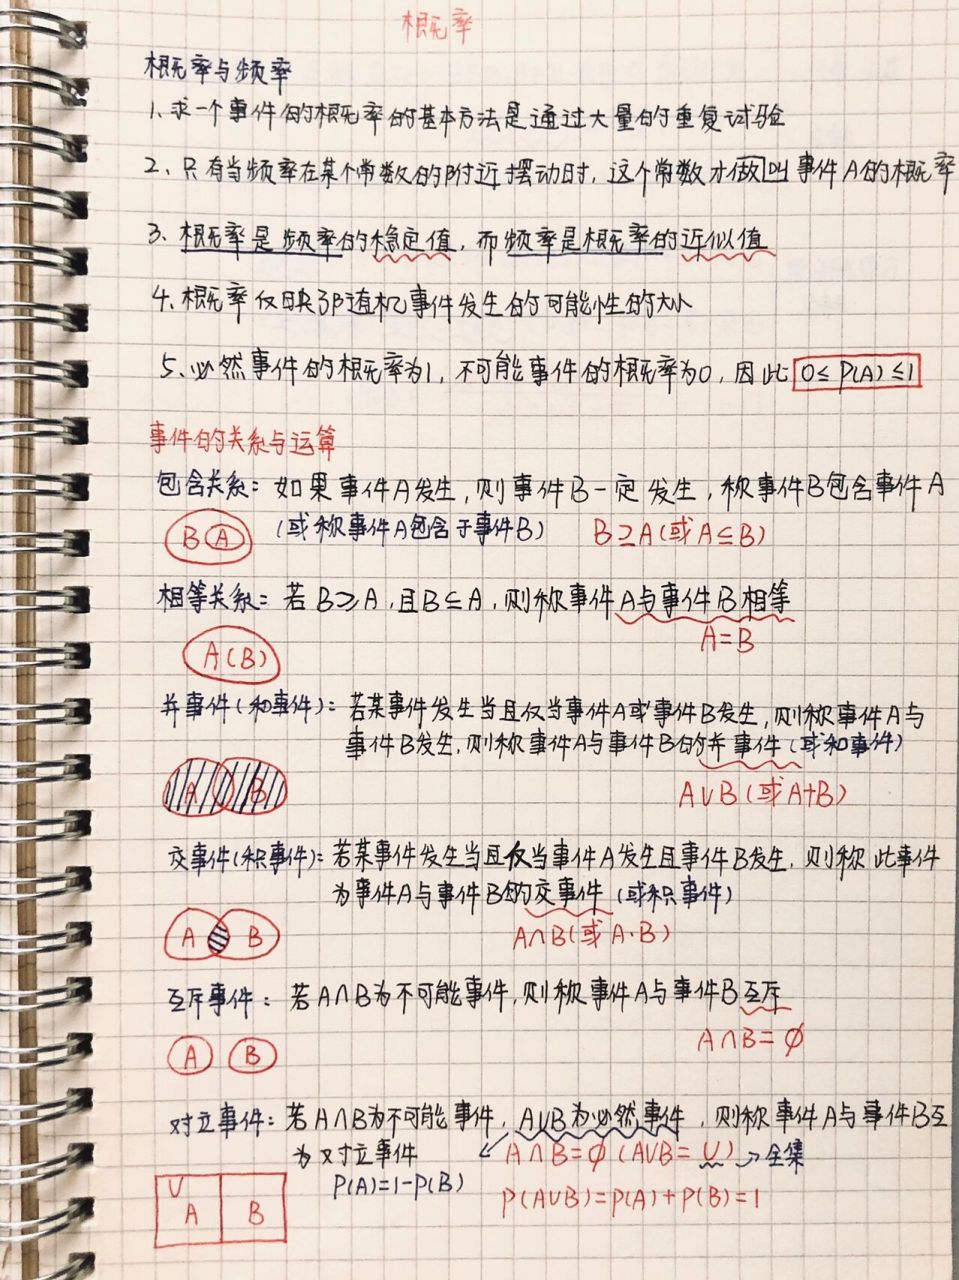 概率
概率与频率
1、求一个事件的概率的基本方法是通过大量的重复试验
2、只有当频率在某个常数的附近摆动时，这个常数才做叫事件A的概率
3、概率是频率的稳定值，而频率是概率的近似值
4、概率仅映了随机事件发生的可能性的大小
5、必然事件的概率为1，不可能事件的概率为0，因此 0≤P(A)≤1
事件的关系与运算
包含关系：如果事件A发生，则事件B一定发生，称事件B包含事件A
B A （或称事件A包含于事件B） B⊇A（或A⊆B）
相等关系：若B⩾A，且B⊆A，则称事件A与事件B相等
A=B
A(B)
并事件（和事件）：若某事件发生当且仅当事件A或事件B发生，则称事件A与
事件B发生，则称事件A与事件B的并事件（或和事件）
A B A∪B（或A+B）
交事件（积事件）：若某事件发生当且仅当事件A发生且事件B发生，则称此事件
为事件A与事件B的交事件（或积事件）
A B A∩B（或A·B）
互斥事件：若A∩B为不可能事件，则称事件A与事件B互斥
A B A∩B=∅
对立事件：若A∩B为不可能事件，A∪B为必然事件，则称事件A与事件B互
为对立事件 ↙ A∩B=∅（A∪B=U）→全集
P(A)=1-P(B) P(A∪B)=P(A)+P(B)=1
U
A B